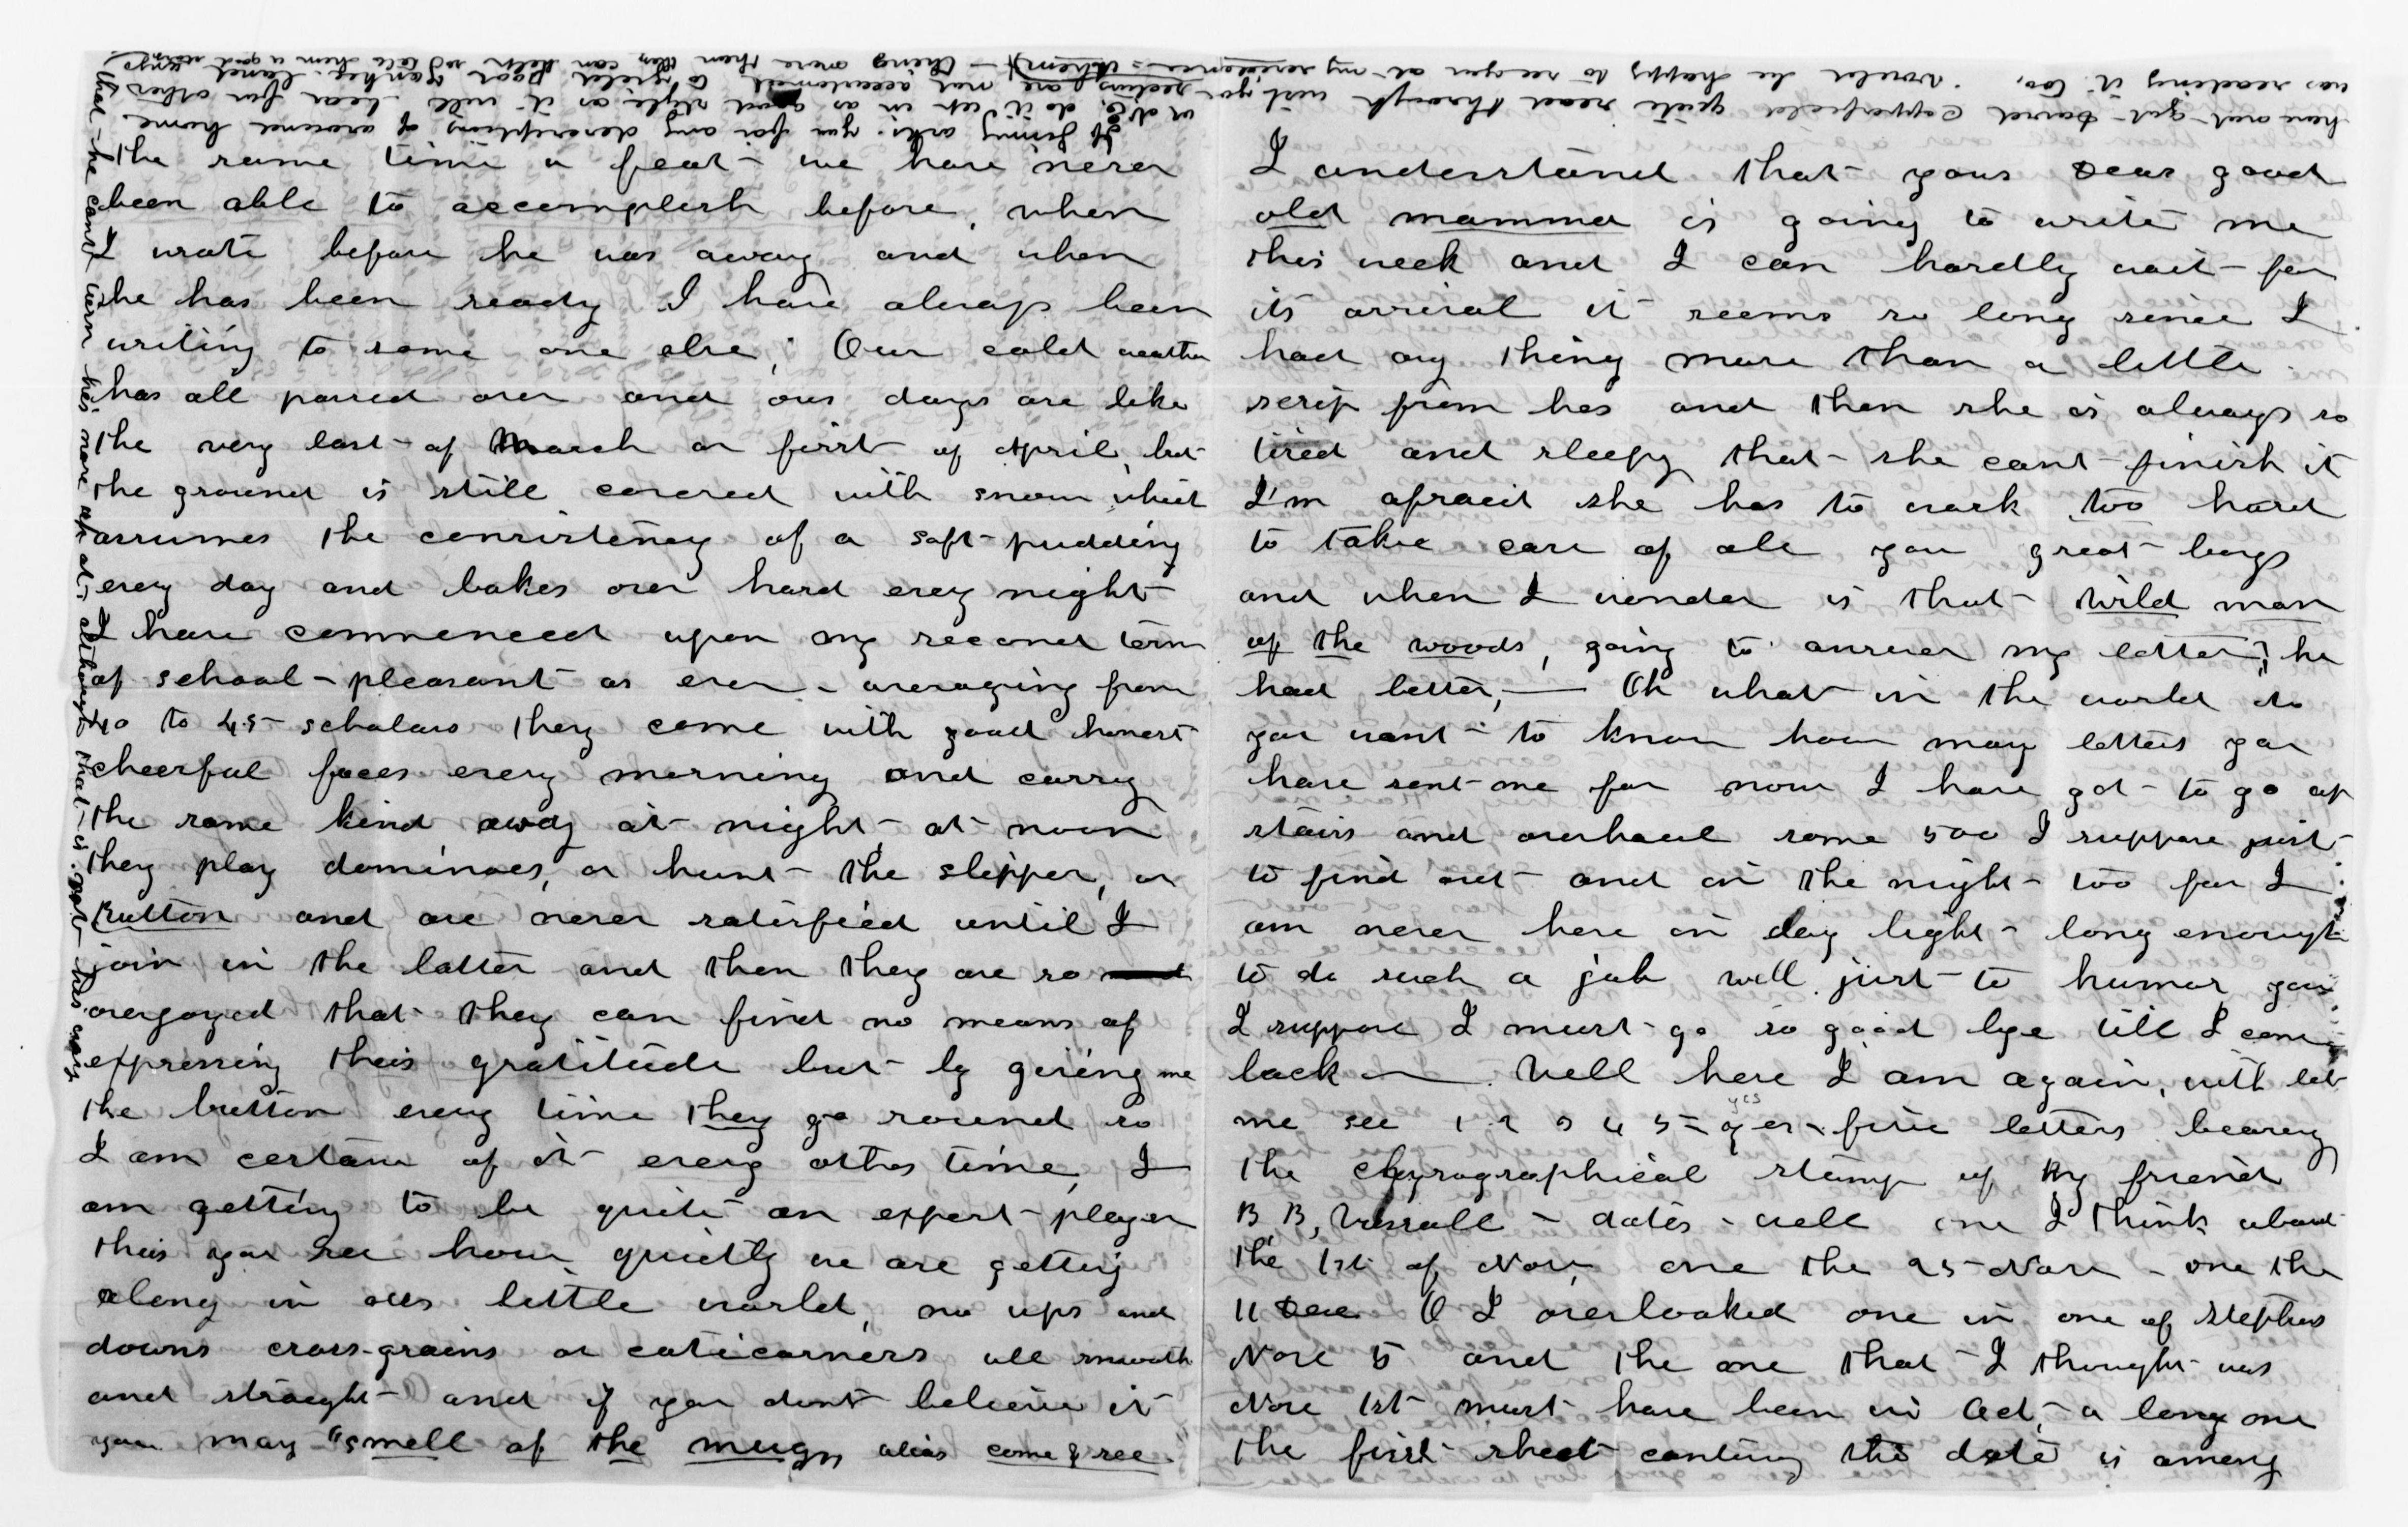 the same time a feat we have never
been able to accomplish before, when
I wrote before he was away and when
he has been ready I have always been
writing to some one else, Our cold weather
has all passed over and our days are like
the very last of March or first of April, but
the ground is still covered with snow which
assumes the consistency of a soft pudding
every day and bakes over hard every night
I have commenced upon my second term
of school - pleasant as ever - averaging from
40 to 45 scholars they come with good honest
cheerful faces every morning and carry
the same kind away at night - at noon
they play dominoes, or hunt the slipper, or
button and are never satisfied until I
join in the latter and then they are so
overjoyed that they can find no means of
expressing their gratitude but by giving me
the button every time they go round so
I am certain of it every other time, I
am getting to be quite an expert player
thus you see how quietly we are getting
along in our little world, no ups and
downs cross-grains or caticorners all smooth
and straight and if you dont believe it
you may "smell of the mug" alias come & see.
that he cant worn his more up at, although that is got his away
If Jinny asks you for any descriptions of around home
do it up in as good style as it will bear for other
sections are not accustomed to yield poor Yankee land
being more than they can help so tell them a good
I understand that your dear good
old mamma is going to write me
this week and I can hardly wait for
its arrival it seems so long since I
had any thing more than a little
scrip from her and then she is always so
tired and sleepy that she cant finish it
I'm afraid she has to work too hard
to take care of all you great boys
and when I wonder is that wild man
of the woods, going to answer my letter, he
had better, — Oh what in the world do
you want to know how many letters you
have sent me for now I have got to go up
stairs and overhaul some 500 I suppose just
to find out and in the night too for I
am never here in day light long enough
to do such a job well just to humor you
I suppose I must go so good bye till I come
back — Well here I am again, with let
me see 1 2 3 4 5 - yes - five letters bearing
yes
the chyrographical stamp of my friend
B. B. Vassall - dates - well one I think about
the 1st of Nov, one the 25 Nov - one the
11 Dec O I overlooked one in one of Stephens
Nov 5 and the one that I thought was
Nov 1st must have been in Oct, a long one
the first sheet containg the date is among
have not got David Copperfield quite read through wish you
was reading it too, would be happy to see you at my residence - Ahem